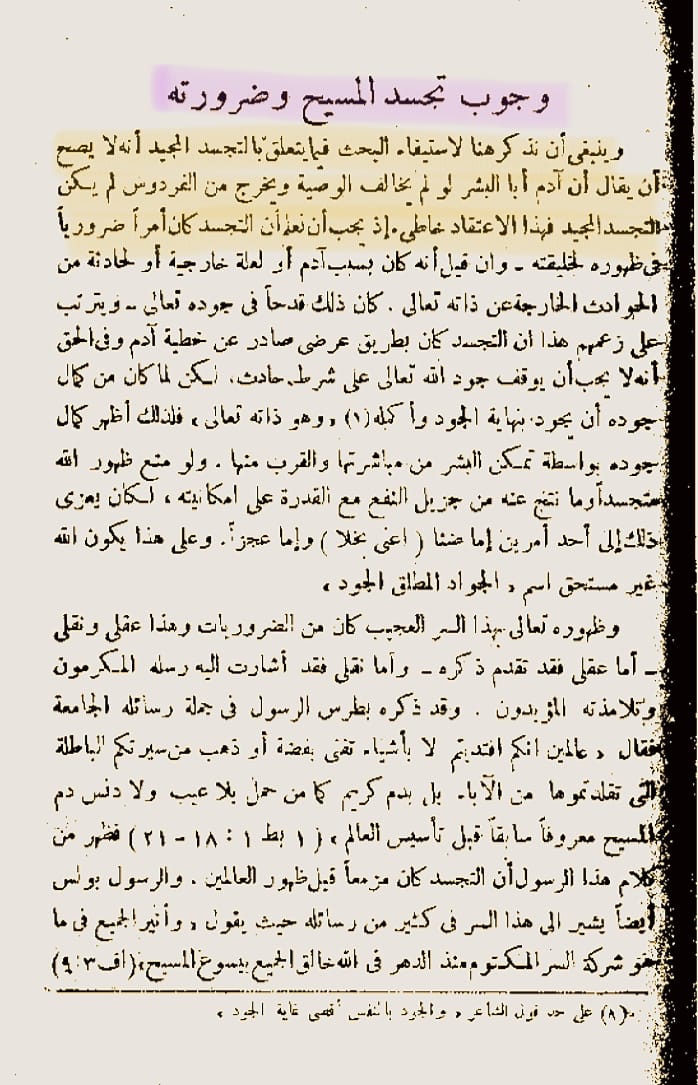 وجوب تجسد المسيح وضرورته
وينبغى أن نذكر هنا لاستيفاء البحث فيما يتعلق بالتجسد المجيد أنه لا يصح
أن يقال أن آدم أبا البشر لو لم يخالف الوصية ويخرج من الفردوس لم يكن
التجسد المجيد فهذا الاعتقاد خاطىء. إذ يجب أن نعلم أن التجسد كان أمراً ضرورياً
فى ظهوره لخليقته ـ وان قيل أنه كان بسبب آدم أو لعلة خارجية أو لحادثة من
الحوادث الخارجة عن ذاته تعالى. كان ذلك قدحاً فى جوده تعالى ـ ويترتب
على زعمهم هذا ان التجسد كان بطريق عرضى صادر عن خطية آدم وفى الحق
أنه لا يجب أن يوقف جود الله تعالى على شرط حادث. لكن لما كان من كمال
جوده أن يجود بنهاية الجود وأكمله (١) «وهو ذاته تعالى» فلذلك أظهر كمال
جوده بواسطة تمكن البشر من مباشرتها والقرب منها. ولو منع ظهور الله
متجسداً وما نتج عنه من جزيل النفع مع القدرة على امكانيته، لكان يعزى
ذلك إلى أحد أمرين إما ضنا ( اعنى بخلا ) وإما عجزاً. وعلى هذا يكون الله
غير مستحق اسم « الجواد المطلق الجود »
وظهوره تعالى بهذا السر العجيب كان من الضروريات وهذا عقلى ونقلى
ـ أما عقلى فقد تقدم ذكره ـ وأما نقلى فقد أشارت اليه رسله المكرمون
وتلامذته المؤيدون. وقد ذكره بطرس الرسول فى جملة رسائله الجامعة
فقال « عالمين انكم افتديتم لا بأشياء تفنى بفضة أو ذهب من سيرتكم الباطلة
التى تقلدتموها من الآباء. بل بدم كريم كما من حمل بلا عيب ولا دنس دم
المسيح معروفاً سابقاً قبل تأسيس العالم» ( ١ بط ١ : ١٨ ـ ٢١ ) فظهر من
كلام هذا الرسول أن التجسد كان مزمعاً قبل ظهور العالمين. والرسول بولس
أيضاً يشير الى هذا السر فى كثير من رسائله حيث يقول « وأنير الجميع فى ما
هو شركة السر المكتوم منذ الدهر فى الله خالق الجميع بيسوع المسيح» (اف ٣ : ٩)
(٨) على حد قول الشاعر « والجود بالنفس أقصى غاية الجود »